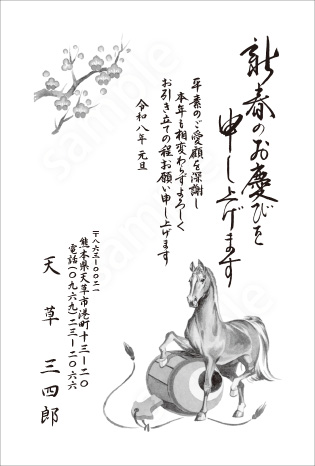 新春のお慶びを
申し上げます
平素のご愛顧を深謝し
本年も相変わらずよろしく
お引き立ての程お願い申し上げます
令和八年 元旦
〒八六三-〇〇二一
熊本県天草市港町十三-二〇
電話(〇九六九)二三-二〇六六
天草 三四郎